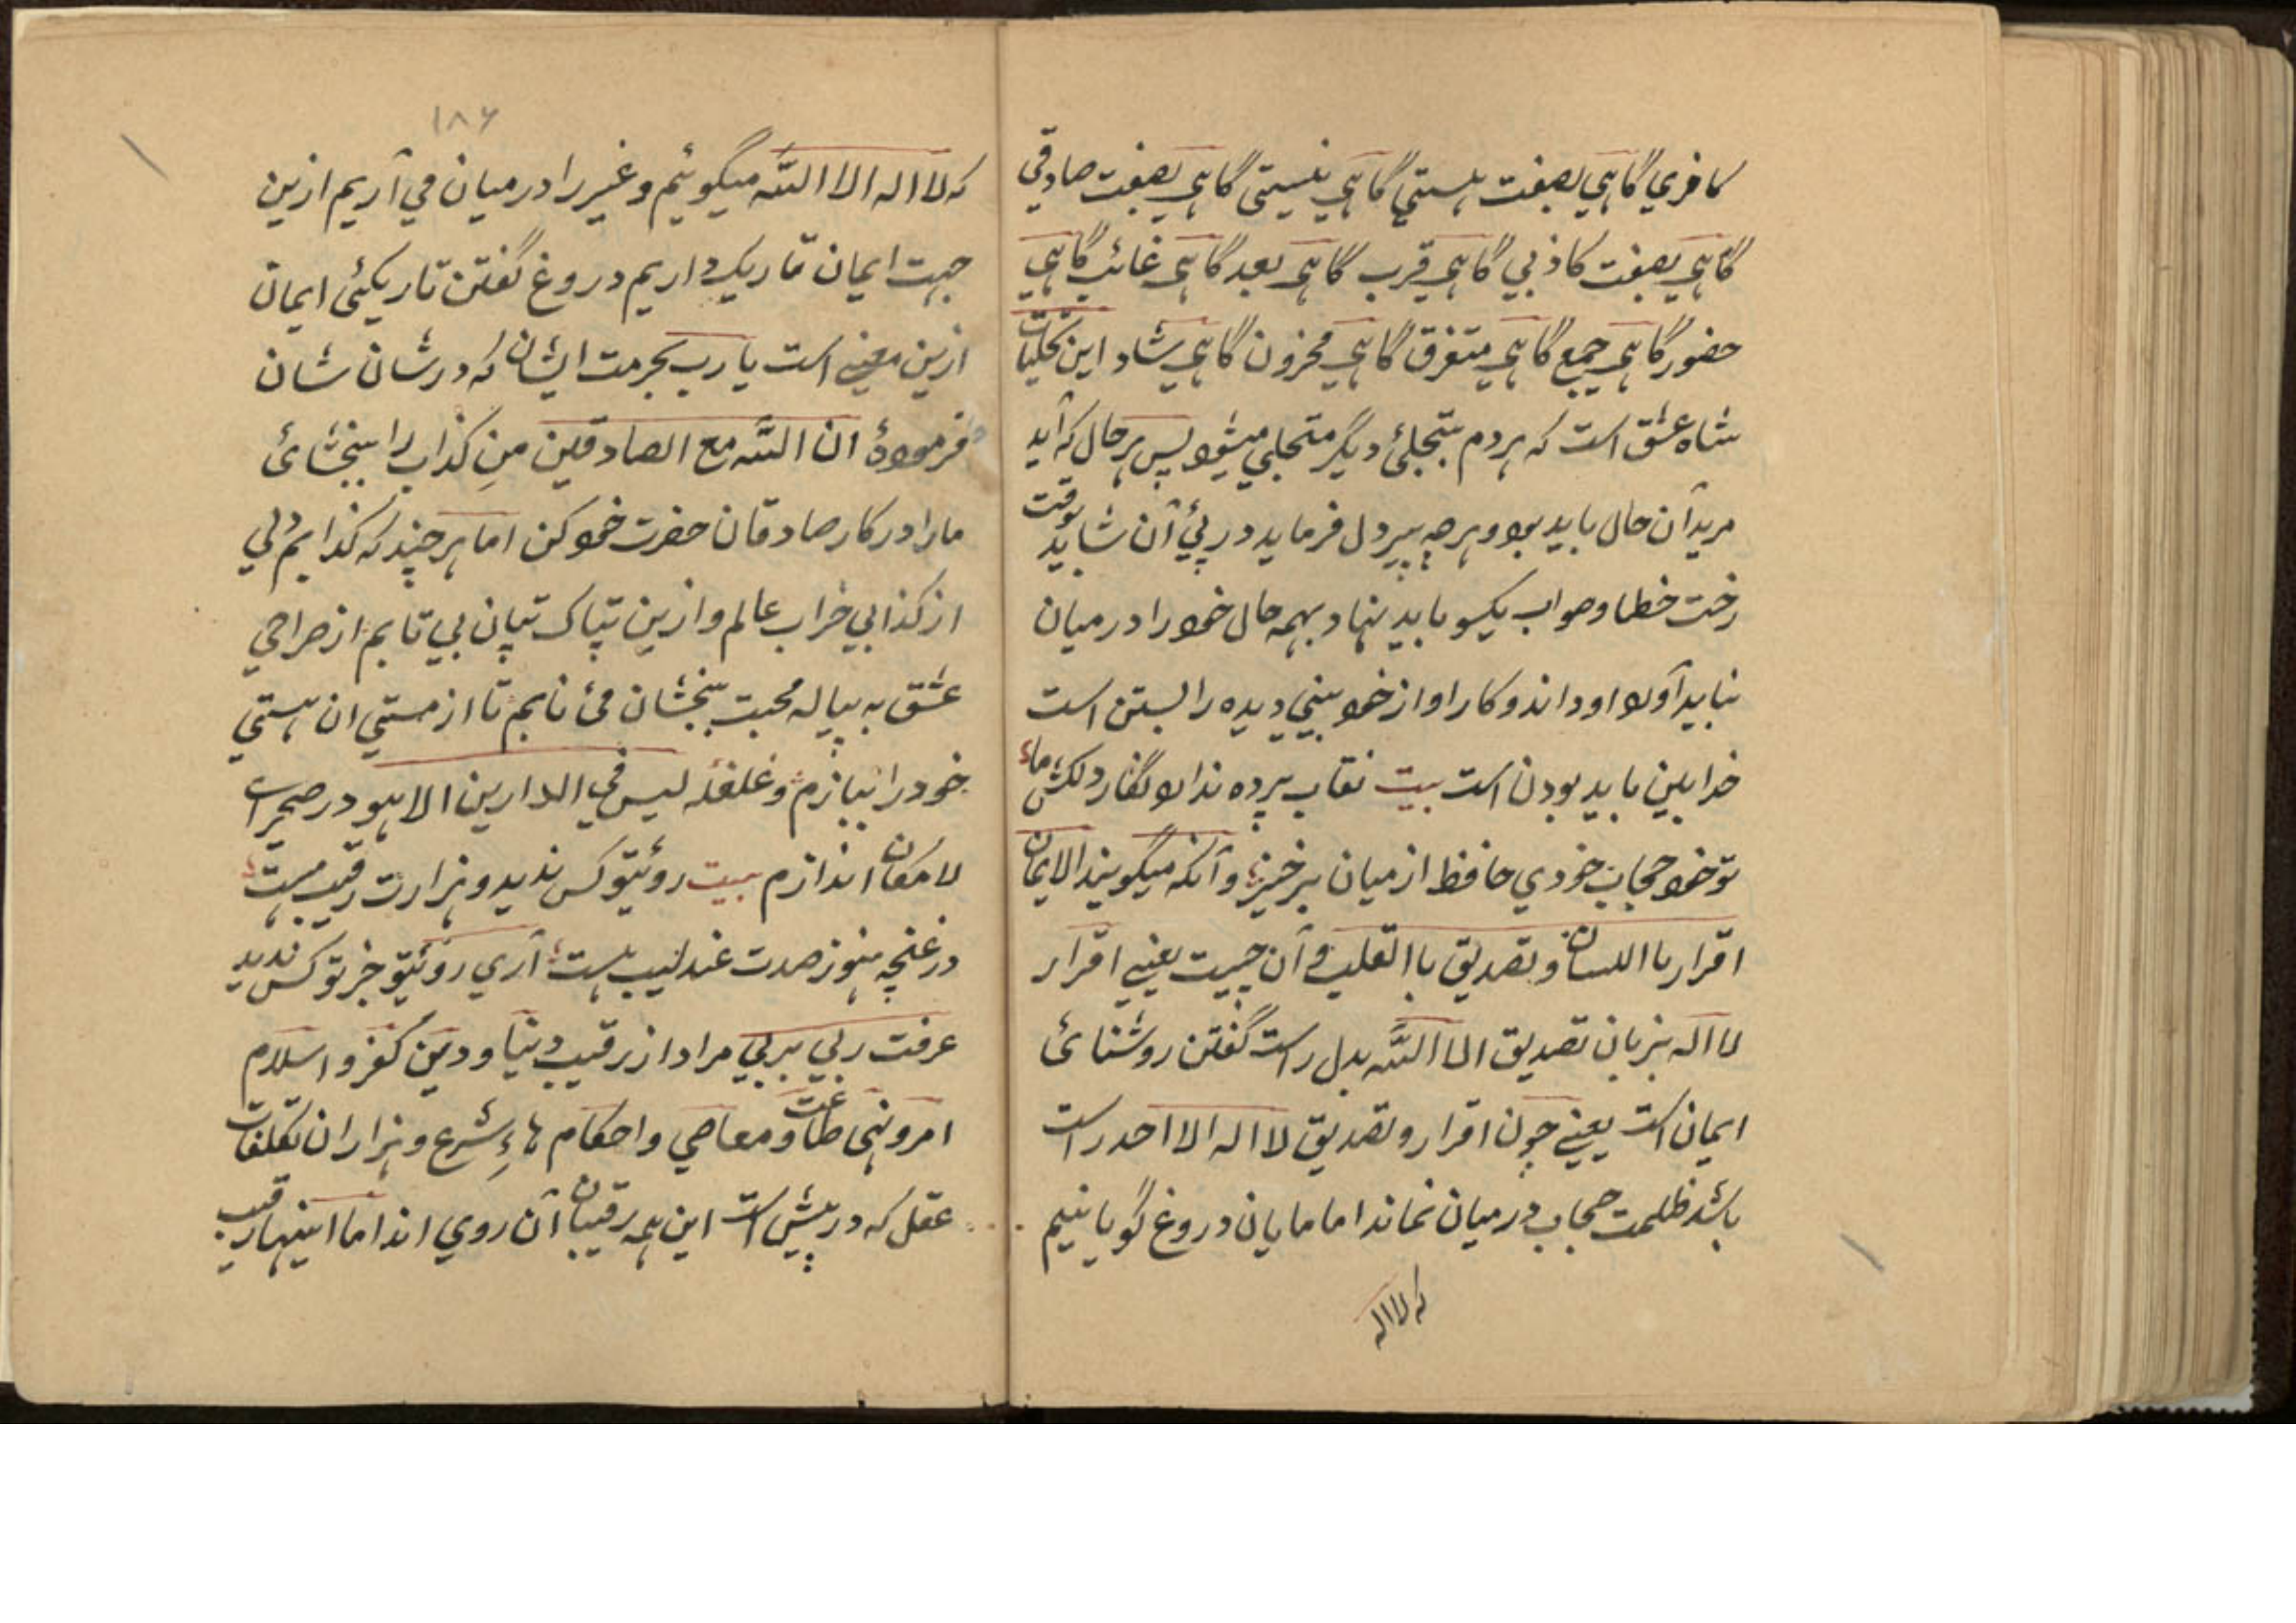 کافری گاهی بصفت هستی گاهی نیستی گاهی بصفت صادقی
گاهی بصفت کاذبی گاهی قرب گاهی بعد گاهی غائب گاهی
حضور گاهی جمع گاهی متفرق گاهی محزون گاهی شاد این تجلیات
شاه عشق است که هر دم بتجلئ دیگر متجلی میشود پس هر حال که آید
مرید آن حال باید بود و هرچه پیر دل فرماید در پئ آن شاید
رخت خطا و صواب یکسو باید نهاد و بهمه حال خود را در میان
نباید آورد او داند و کار او از خود بینی دیده را بستن است
خدا بین باید بودن است بیت نقاب پرده ندارد نگار دلکش ما
تو خود حجاب خودی حافظ از میان برخیز و آنکه میگویند الایمان
اقرار باا اللسان و تصدیق باا القلب و آن چیست یعنی اقرار
لا اله بزبان تصدیق الا اللّه بدل راست گفتن روشنائ
ایمان است یعنی چون اقرار و تصدیق لا اله الا احد راست
باشد ظلمت حجاب در میان نماند اما مایان دروغ گویانیم
که لا اله
۱۸۶
که لا اله الا اللّه میگوئیم و غیر را در میان می آریم ازین
جهت ایمان تاریک داریم دروغ گفتن تاریکئ ایمان
ازین معنی است یا رب بحرمت ایشان که در شان شان
فرمودهٔ ان اللّه مع الصادقین منِ کذاب را ببخشائ
مارا در کار صادقان حضرت خود کن اما هر چند که کذابم ولی
از کذابی خراب عالم و ازین تپاک تپان بی تابم از صراحی
عشق به پیاله محبت بخشان مئ نابم تا از مستی ان هستی
خود را ببازم و غلغله لیس فی الدارین الا هو در صحرای
لامکان اندازم بیت روئیتو کس ندید و هزارت رقیب هست
در غنچه هنوز صدت عندلیب هست آری روئیتو جز تو کس ندید
عرفت ربی بربی مراد از رقیب دنیا و دین کفر و اسلام
امر و نهی طاعت و معاصی و احکام هاءِ شرع و هزاران تکلفات
عقل که در پیش است این همه رقیبان آن روی اند اما اینها رقیب